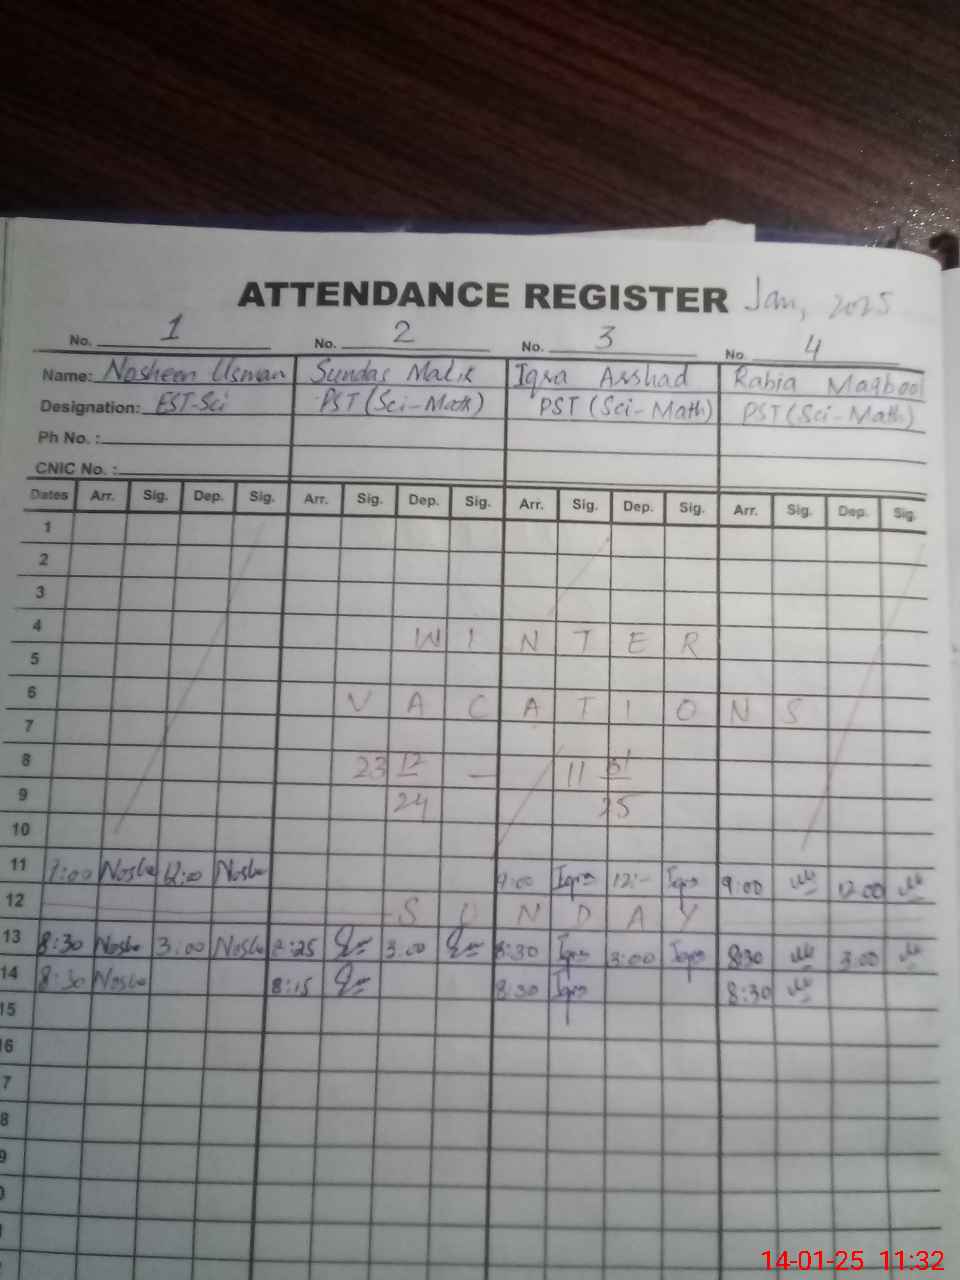 ATTENDANCE REGISTER Jan, 2025
No. 1 No. 2 No. 3 No. 4
Name: Nosheen Usman Sundas Malik Iqra Arshad Rabia Maqbool
Designation: EST-Sci PST (Sci-Math) PST (Sci-Math) PST (Sci-Math)
Ph No. :
CNIC No. :
Dates Arr. Sig. Dep. Sig. Arr. Sig. Dep. Sig. Arr. Sig. Dep. Sig. Arr. Sig. Dep. Sig.
1
2
3
4 W I N T E R
5
6 V A C A T I O N S
7
8 23 12 — 11
9 24 25
10
11 Noshe 12:00 Noshe 9:00 Iqra 12:- Iqra 9:00 12:00
12 S U N D A Y
13 8:30 Noshe 3:00 Noshe 8:25 3:00 8:30 Iqra 3:00 Iqra 8:30 3:00
14 8:30 Noshe 8:15 8:30 Iqra 8:30
15
16
7
8
9
14-01-25 11:32